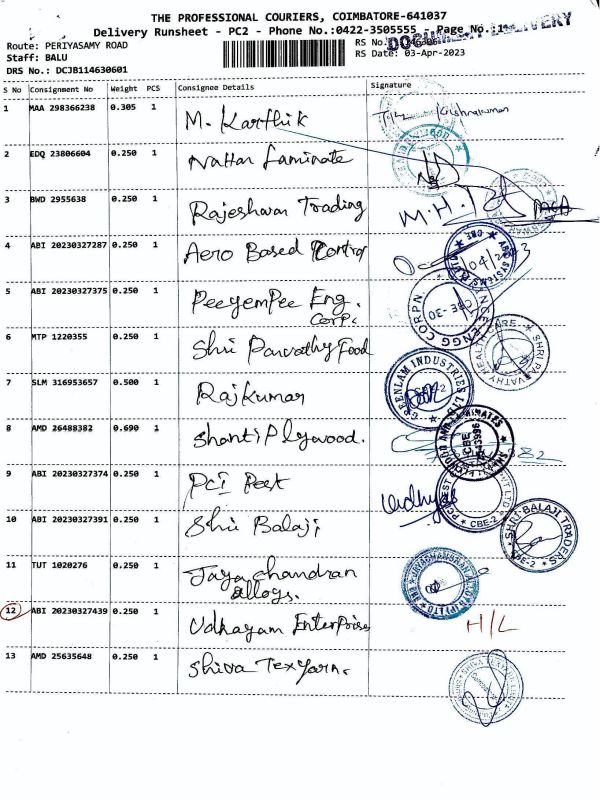 THE PROFESSIONAL COURIERS, COIMBATORE-641037
Delivery Runsheet - PC2 - Phone No.:0422-3505555 Page No.:1
DOCUMENT DELIVERY
Route: PERIYASAMY ROAD
Staff: BALU
DRS No.: DCJB114630601
RS No.
RS Date: 03-Apr-2023
S No Consignment No Weight PCS Consignee Details Signature
1 MAA 298366238 0.305 1 M. Karthik
2 EDQ 23806604 0.250 1 Nattan Laminate
3 BWD 2955638 0.250 1 Rajeshwari Trading M.H.
4 ABI 20230327287 0.250 1 Aero Based Control
5 ABI 20230327375 0.250 1 PeeyemPee Eng. Corp.
ENGG CORPN CBE-30
6 MTP 1220355 0.250 1 Shri Parvathy Food
SHRI PARVATHY HEALTH CARE
7 SLM 316953657 0.500 1 Rajkumar
GREENLAM INDUSTRIES LTD
8 AMD 26488382 0.690 1 Shanti Plywood.
9 ABI 20230327374 0.250 1 PCI Pest
CBE-2
10 ABI 20230327391 0.250 1 Shri Balaji
SHRI BALAJI TRADERS CBE-2
11 TUT 1020276 0.250 1 Jaya chandran alloys.
12 ABI 20230327439 0.250 1 Udhayam Enterprises H/L
13 AMD 25635648 0.250 1 Shiva Texyarn.